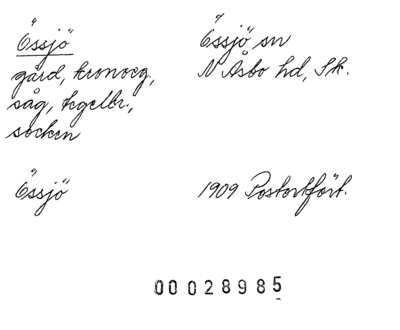 Össjö
gård, kronoeg,
såg, tegelbr.,
socken
Össjö sn
N Åsbo hd, Sk.
Össjö
1909 Postortsfört.
00028985